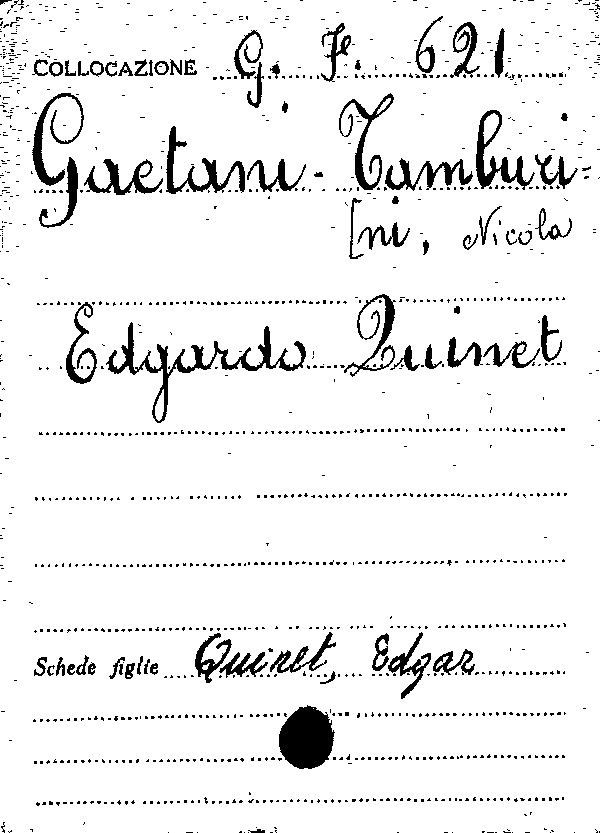 COLLOCAZIONE G. Fe. 621
Gaetani-Tamburi-
[ni, Nicola
Edgardo Quinet
Schede figlie Quinet, Edgar